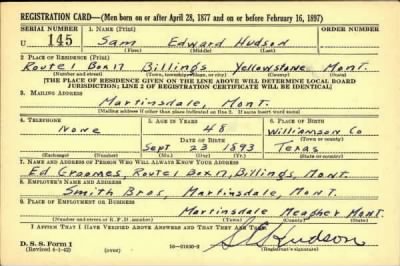 REGISTRATION CARD—(Men born on or after April 28, 1877 and on or before February 16, 1897)
SERIAL NUMBER 1. NAME (Print) ORDER NUMBER
U 145 Sam Edward Hudson
(First) (Middle) (Last)
2. PLACE OF RESIDENCE (Print)
Route 1 Box 17 Billings Yellowstone Mont.
(Number and street) (Town, township, village, or city) (County) (State)
[THE PLACE OF RESIDENCE GIVEN ON THE LINE ABOVE WILL DETERMINE LOCAL BOARD
JURISDICTION; LINE 2 OF REGISTRATION CERTIFICATE WILL BE IDENTICAL]
3. MAILING ADDRESS
Martinsdale, Mont.
[Mailing address if other than place indicated on line 2. If same insert word same]
4. TELEPHONE 5. AGE IN YEARS 6. PLACE OF BIRTH
None 48 Williamson Co
DATE OF BIRTH (Town or county)
Sept 23 1893 Texas
(Exchange) (Number) (Mo.) (Day) (Yr.) (State or country)
7. NAME AND ADDRESS OF PERSON WHO WILL ALWAYS KNOW YOUR ADDRESS
Ed Groomes, Route 1 Box 17, Billings, Mont.
8. EMPLOYER'S NAME AND ADDRESS
Smith Bros, Martinsdale, Mont.
9. PLACE OF EMPLOYMENT OR BUSINESS
Martinsdale Meagher Mont.
(Number and street or R. F. D. number) (Town) (County) (State)
I AFFIRM THAT I HAVE VERIFIED ABOVE ANSWERS AND THAT THEY ARE TRUE.
D. S. S. Form 1
(Revised 4-1-42) Hudson
(Registrant's signature)